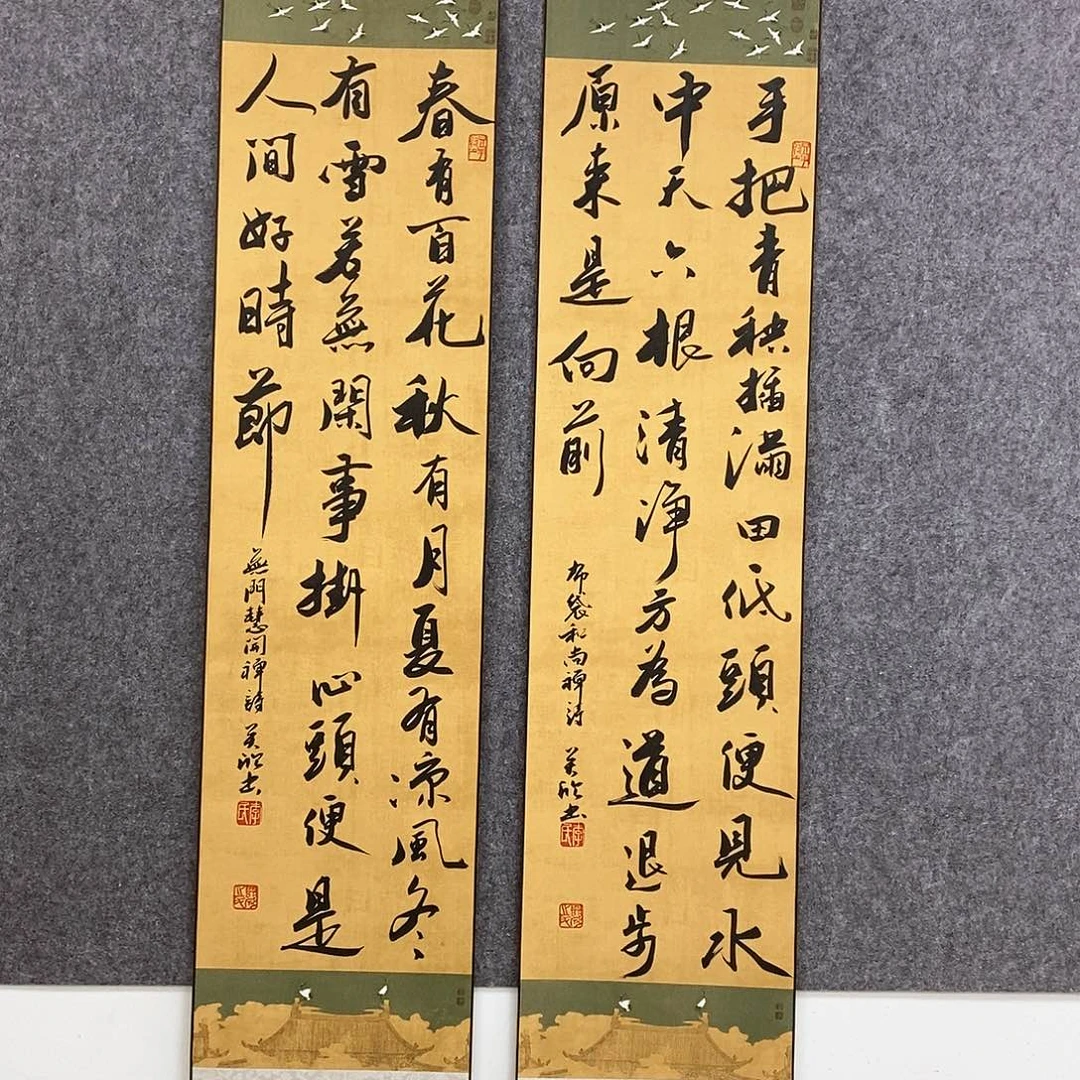 手把青秧插滿田低頭便見水
中天六根清净方為道退步
原来是向前
布袋和尚禅诗 美欣书
春有百花秋有月夏有凉風冬
有雪若無閑事掛心頭便是
人間好時節
無門慧開禅詩 美欣书